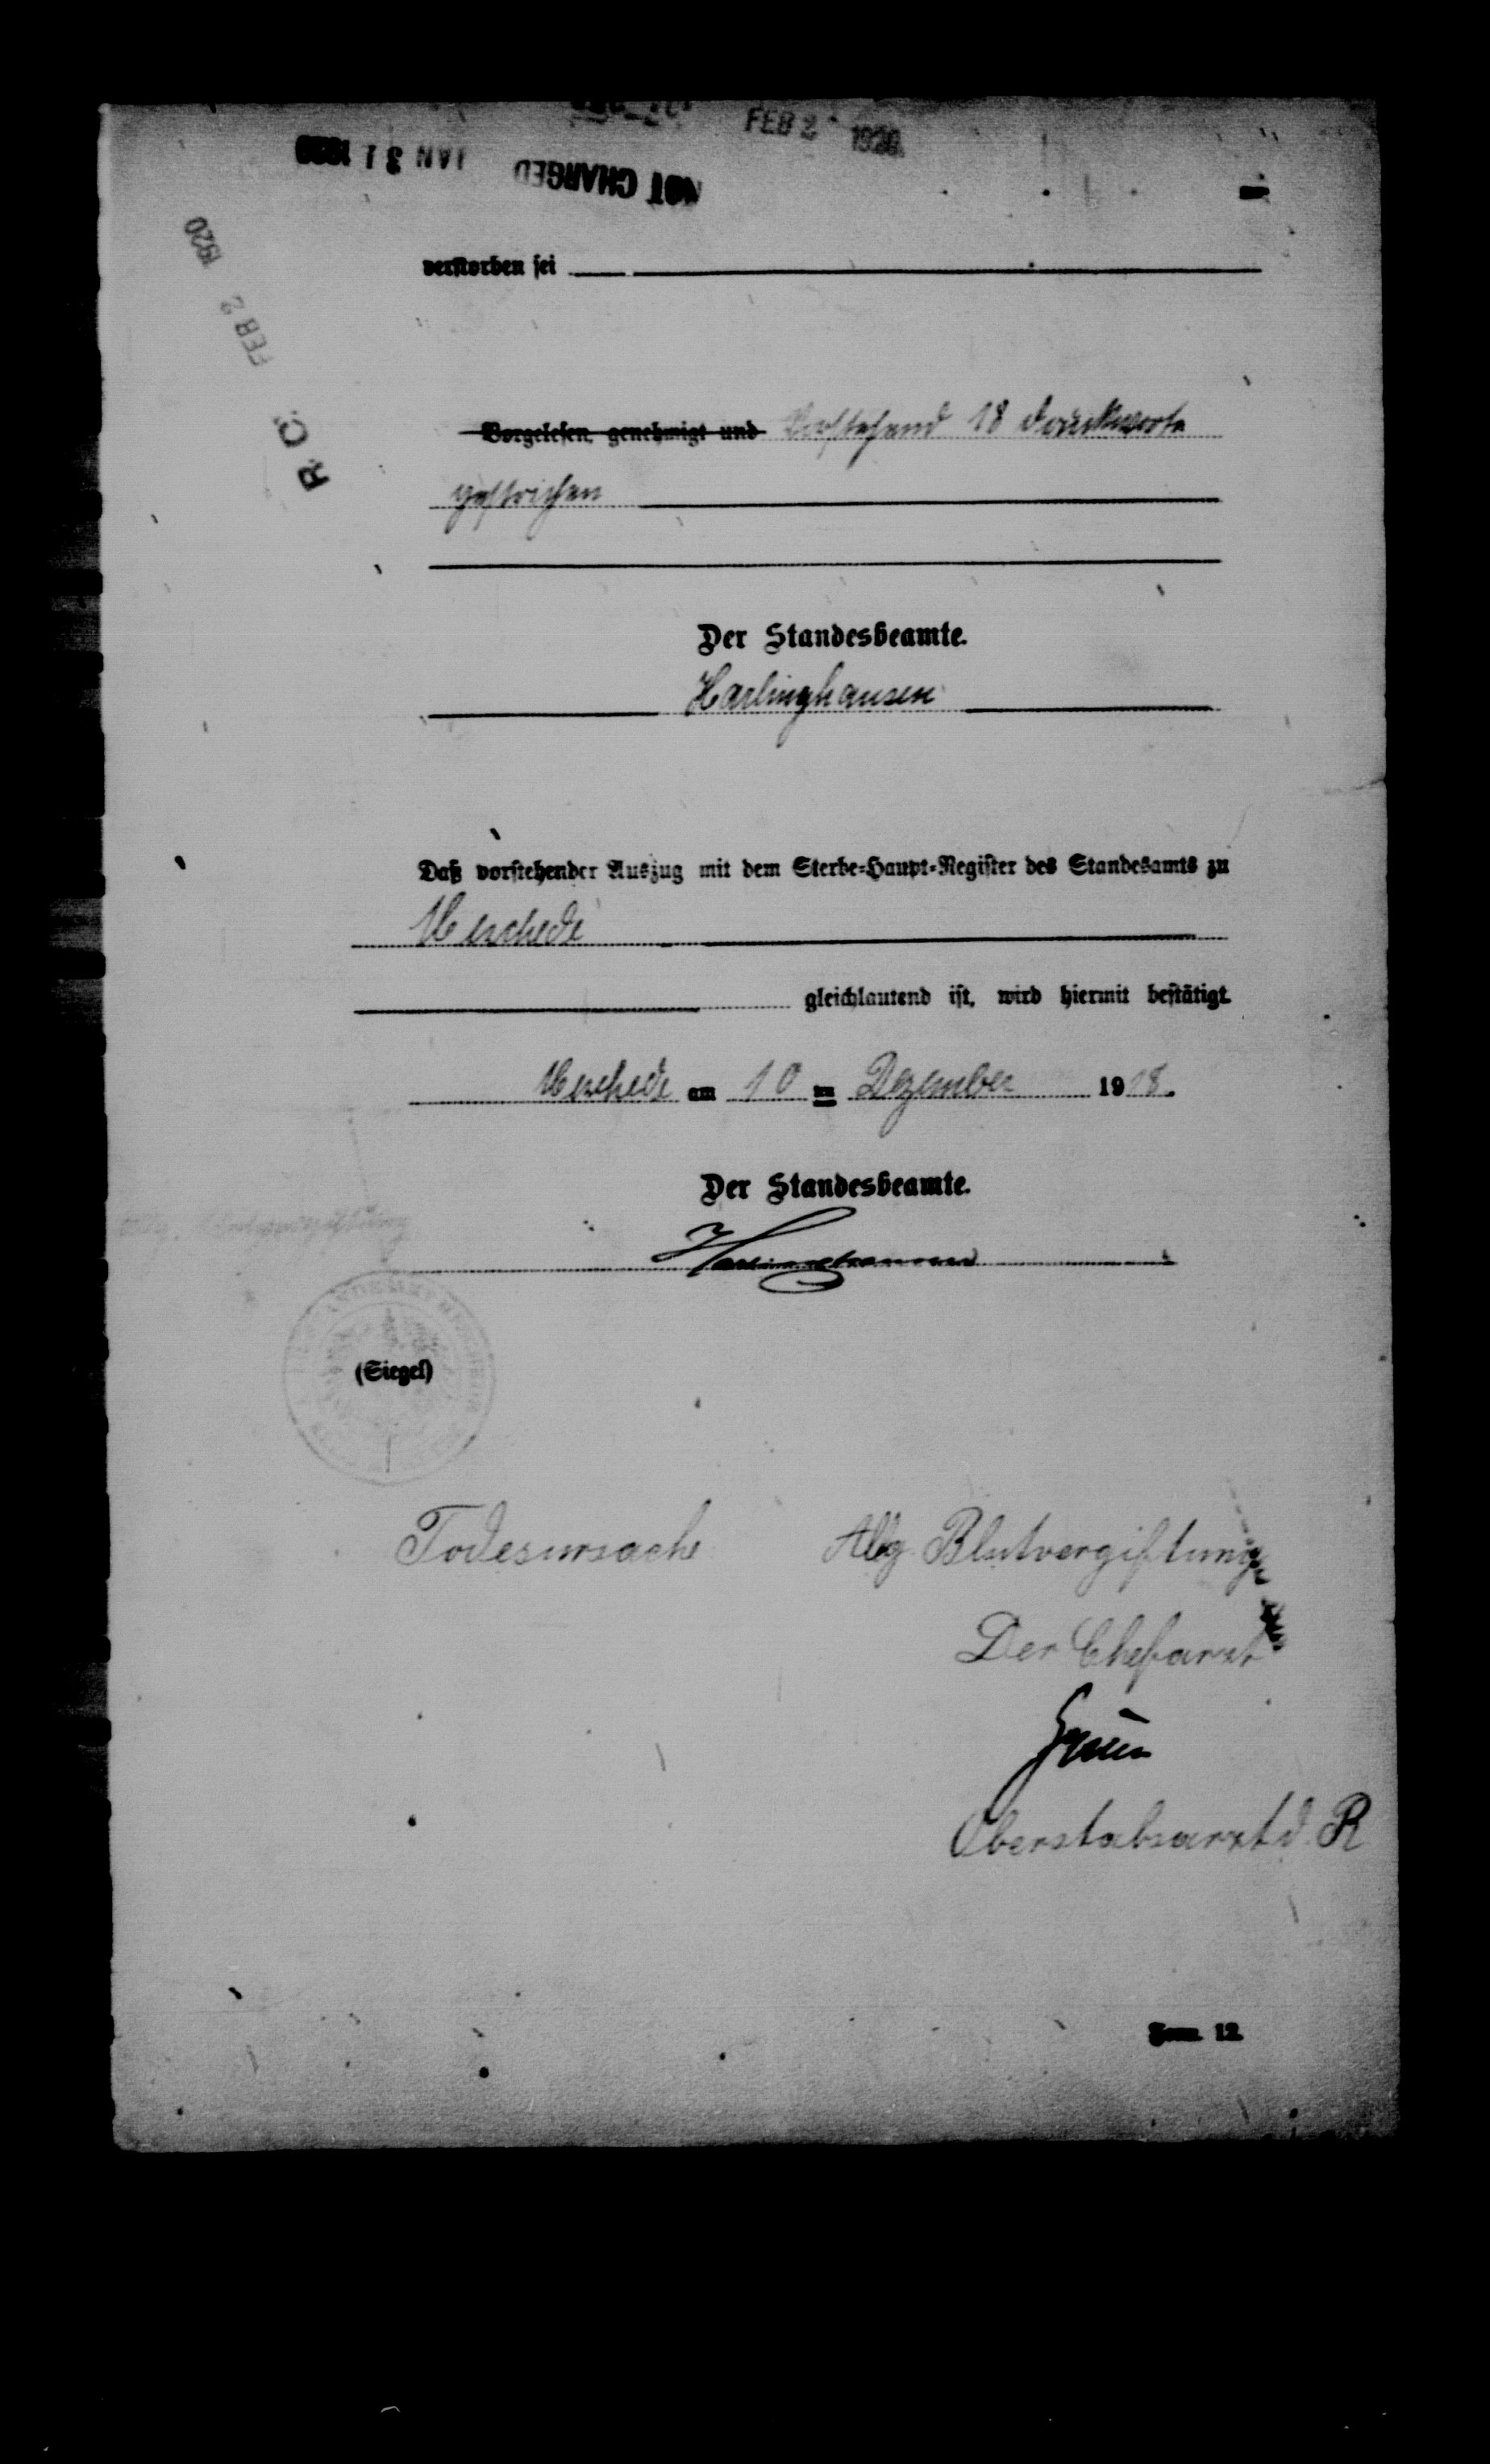 FEB 2 1920
JAN 31 1920
NOT CHARGED
FEB 2 1920
R.C.
verstorben sei
Vorgelesen, genehmigt und Vorstehend 18 Druckworte
gestrichen
Der Standesbeamte.
Harlinghausen
Daß vorstehender Auszug mit dem Sterbe-Haupt-Register des Standesamts zu
Meschede
gleichlautend ist, wird hiermit bestätigt.
Meschede am 10 ten Dezember 1918.
Der Standesbeamte.
Harlinghausen
(Siegel)
Todesursache Allg. Blutvergiftung
Der Chefarzt
Oberstabsarzt d. R
Form. 12.